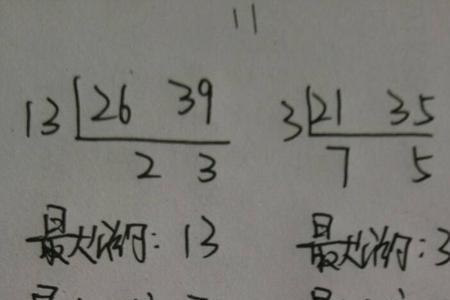 11
13 26 39 3 21 35
2 3 7 5
最大公约: 13 最大公约: 3